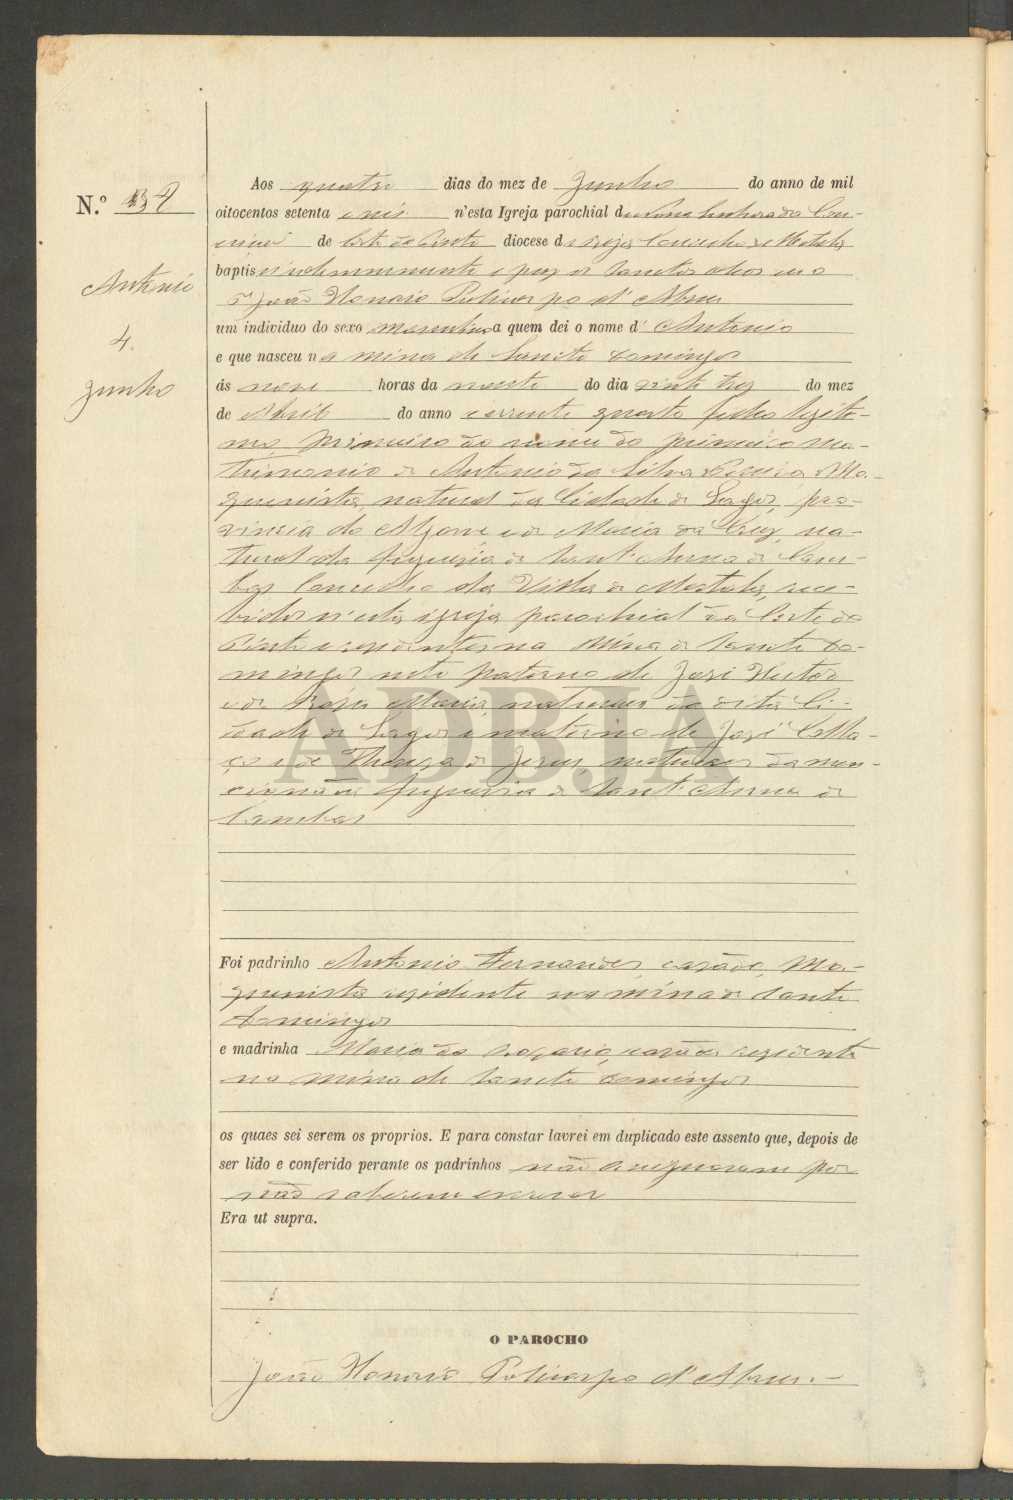 Aos quatro dias do mez de Junho do anno de mil
N.º
oitocentos setenta e seis n'esta Igreja parochial de Nossa Senhora da Con-
ceicaõ de Corte do Pinto diocese de Beja Concelho de Mertola
baptisei solemnemente e puz os Sanctos oleos eu o
P.e João Honorio Policarpo d'Abreu
um individuo do sexo masculino a quem dei o nome de Antonio
Antonio
e que nasceu na mina de Sancto Domingos
4.
ás nove horas da noute do dia vinte trez do mez
Junho
de Abril do anno corrente quarto filho legiti-
mo primeiro do nome do primeiro ma-
trimonio de Antonio da Silva Ma-
quinista, natural da Cidade de Lagos, pro-
vincia do Algarve e de Maria da Cruz, na-
tural da freguesia de Sant'Anna de Cam-
bas Concelho da Villa de Mertola, rece-
bidos n'esta igreja parochial da Corte do
Pinto e residentes na Mina de Sancto Do-
mingos neto paterno de José
e de Roza Maria, naturaes da dita Ci-
dade de Lagos e materno de José Colla-
ço e de Thereza de Jesus, naturaes da men-
cionada freguesia de Sant'Anna de
Cambas
ADBJA
Foi padrinho Antonio Fernandes, casado, Ma-
quinista residente na mina de Sancto
Domingos
e madrinha Maria do Rozario, casada residente
na mina de Sancto Domingos
os quaes sei serem os proprios. E para constar lavrei em duplicado este assento que, depois de
ser lido e conferido perante os padrinhos não assignaram por
não saberem escrever
Era ut supra.
O PAROCHO
João Honorio Policarpo d'Abreu.